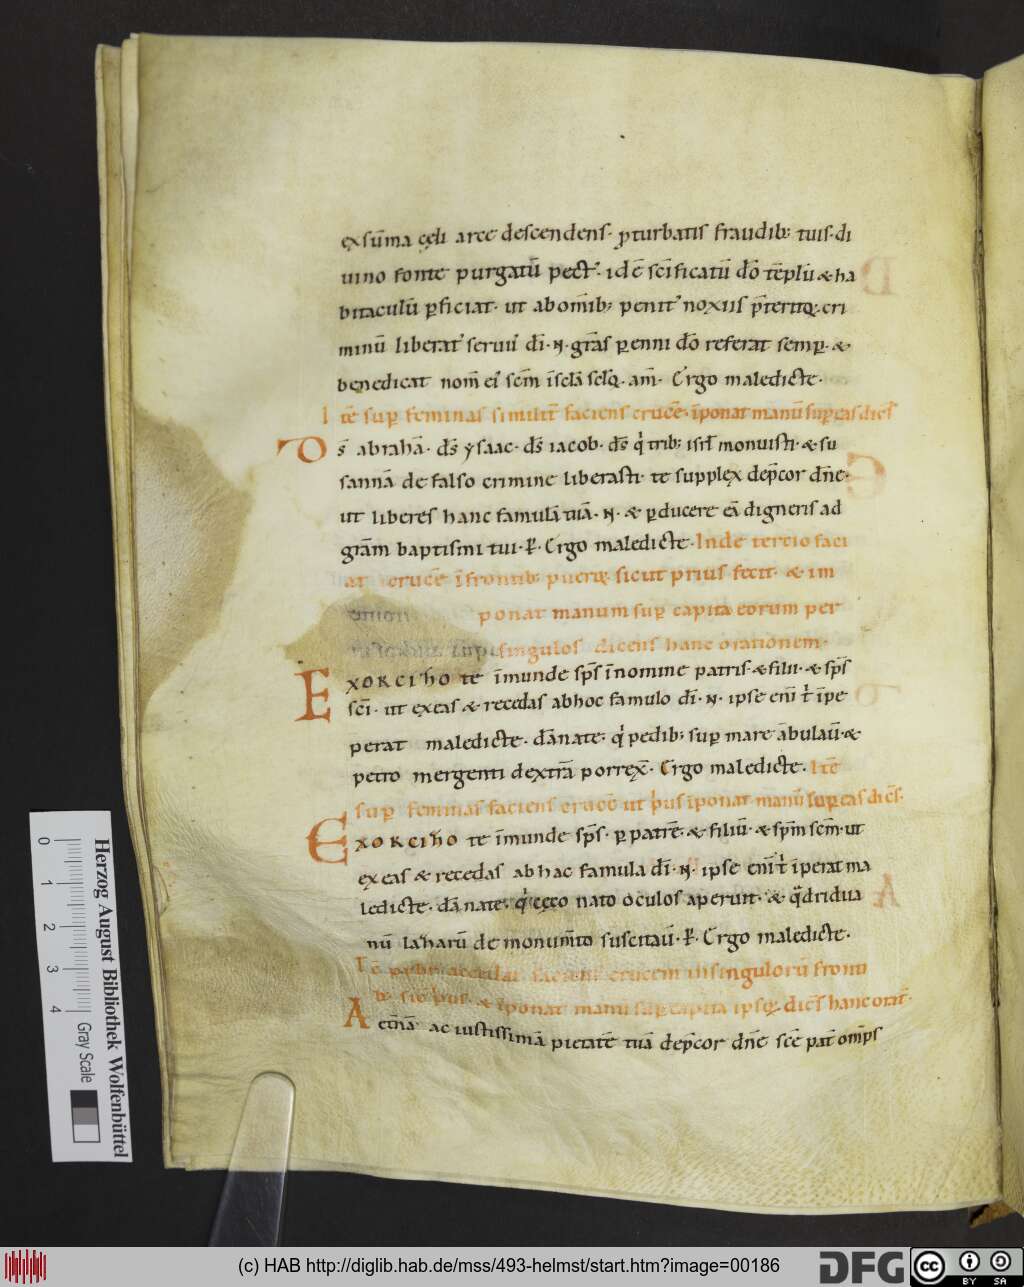 exsūma cęli arce descendens· pturbatis fraudib; tuis· di
uino fonte purgatū pect᷒· idē sc̄ificatū dō tēplū & ha
bitaculū pficiat· ut ab om̄ib; penit᷒ noxiis p̄teritoꝝ cri
minū liberat᷒ seruu᷒ dī· N· grās penni dō referat semp· &
benedicat nom̄ ei᷒ sc̄m īscl̄a scl̄oꝝ· am̄· Ergo maledicte·
Itē sup feminas similit̄ faciens crucē· īponat manū sup eas dicēs
Ds̄ abrahā· ds̄ ysaac· ds̄ iacob· ds̄ qͥ trib; isrl̄ monuisti· & su
sannā de falso crimine liberasti· te supplex dep̄cor dn̄e·
ut liberes hanc famulā tuā· N· & pducere eā digneris ad
grām baptismi tui· P̱· Ergo maledicte· Inde tercio faci
at crucē ī frontib; pueroꝝ sicut prius fecit· & im
ponat manum sup capita eorum per
singulos dicens hanc orationem·
Exorciho te īmunde sp̄s īnomine patris & filii· & sp̄s
sc̄i· ut exeas & recedas abhoc famulo dī· N· ipse enī t̄ īpe
perat maledicte· dānate; qͥ pedib; sup mare ābulauͥ· &
petro mergenti dextrā porrex̄· Ergo maledicte· Itē
sup feminas faciens crucē ut pͥus īponat manū sup eas dicēs·
Exorciho te īmunde sp̄s· p patrē· & filiū· & sp̄m sc̄m· ut
exeas & recedas ab hac famula dī· N· ipse enī t̄ īperat ma
ledicte· dānate· qͥ cęco nato oculos aperuit· & qͣdridua
nū laharū de monum̄to suscitauͥ· P̱· Ergo maledicte·
faciens crucem in singuloru fronti
b; sic pͥus· & īponat manū sup capita ipsoꝝ· dicēs hanc orat̄·
Aet̄nā ac iustissimā pietatē tuā dep̄cor dn̄e sc̄e pat̄ om̄ps
0
1
2
3
4
Gray Scale
Herzog August Bibliothek Wolfenbüttel
(c) HAB http://diglib.hab.de/mss/493-helmst/start.htm?image=00186
DFG
cc
BY SA